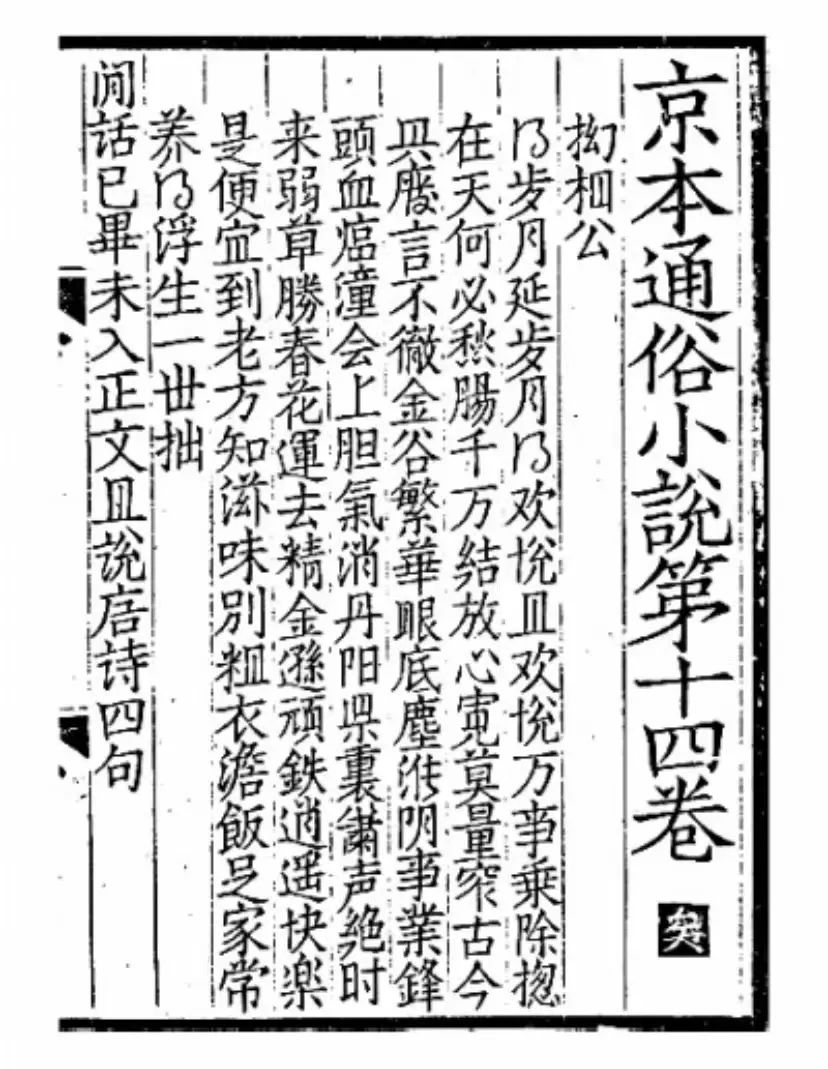 京本通俗小說第十四卷
拗相公
得岁月延岁月得欢悅且欢悅万事乘除摠
在天何必愁腸千万結放心寬莫量窄古今
興廢言不徹金谷繁華眼底塵淮阴事業鋒
頭血臨潼会上胆氣消丹阳県裏簫声絶时
来弱草勝春花運去精金遜頑鉄逍遥快楽
是便宜到老方知滋味別粗衣澹飯足家常
养得浮生一世拙
閒話已畢未入正文且說唐詩四句